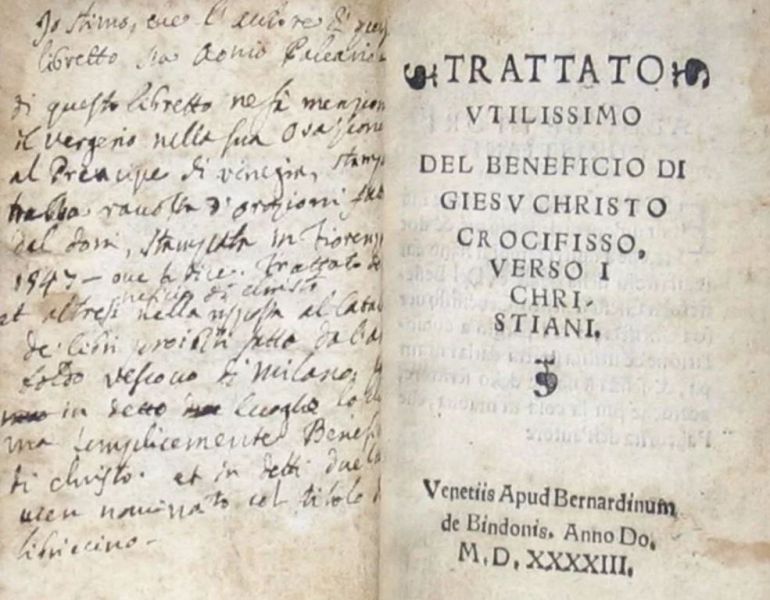 Io stimo, che l'autore di ques
libretto sia Aonio Paleario
di questo libretto ne fà menzion
il Vergerio nella sua Orazione
al Principe di Venezia, stamp
raccolta d'orazioni
dal Doni, stampata in Fiorenz
1547 – ove si dice. Trattato del
neficio di christo
et altresi nella risposta al Catal
de libri proibiti fatto da l'
Vescovo di Milano,
in detto luogho lo
ma semplicemente Benefi
di christo. et in detti due
vien nominato col titolo d
libriccino.
TRATTATO
VTILISSIMO
DEL BENEFICIO DI
GIESV CHRISTO
CROCIFISSO,
VERSO I
CHRI-
STIANI.
Venetiis Apud Bernardinum
de Bindonis. Anno Do.
M. D. XXXXIII.